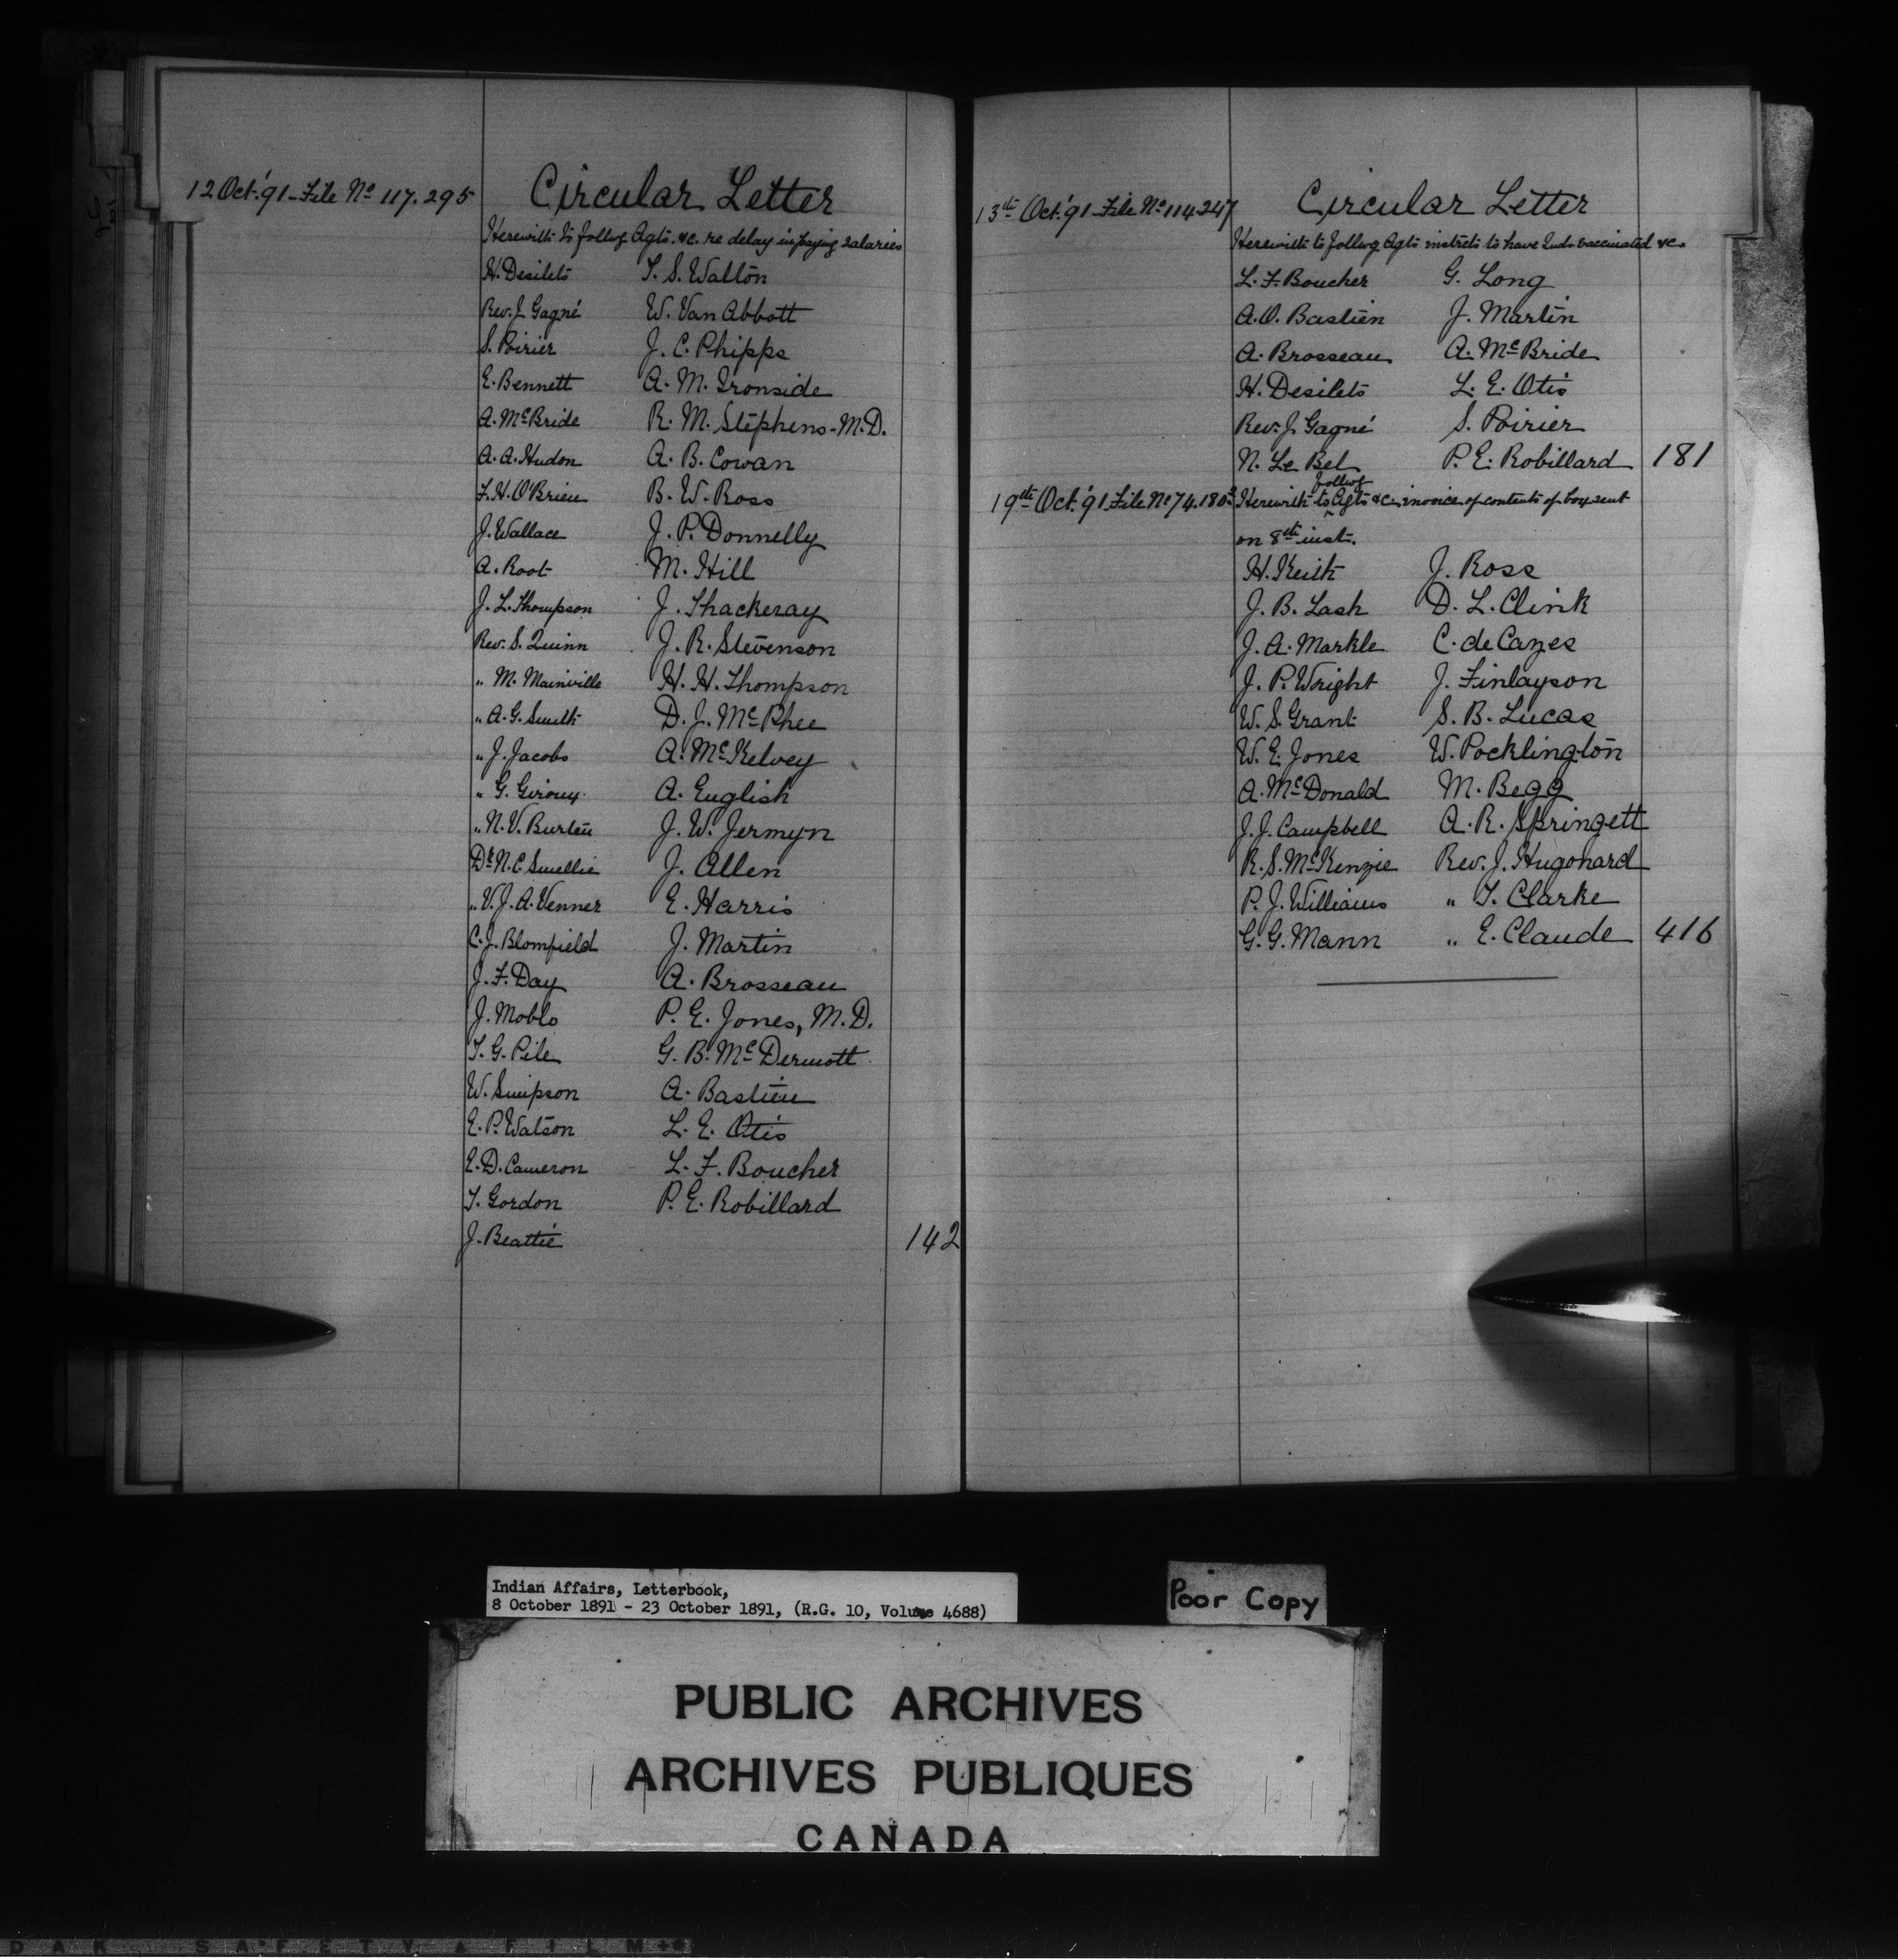 12 Oct. '91 - File No 117.295 Circular Letter
Herewith to follwg Agts. &c. re delay in paying salaries
H. Desilets T. S. Walton
Rev. J. Gagné W. Van Abbott
S. Poirier J. C. Phipps
E. Bennett A. M. Ironside
A. McBride R. M. Stephens - M.D.
A. A. Hudon A. B. Cowan
F. H. O'Brien B. W. Ross
J. Wallace J. P. Donnelly
A. Root M. Hill
J. L. Thompson J. Thackeray
Rev. S. Quinn J. R. Stevenson
" M. Mainville H. H. Thompson
" A. G. Smith D. J. McPhee
" J. Jacobs A. McKelvey
" G. Giroux A. English
" N. V. Burtin J. W. Jermyn
Dr. N. C. Smellie J. Allen
" V. J. A. Venner E. Harris
C. J. Blomfield J. Martin
J. F. Day A. Brosseau
J. Moblo P. E. Jones, M.D.
T. G. Pile G. B. McDermott
W. Simpson A. Bastien
E. P. Watson L. E. Otis
E. D. Cameron L. F. Boucher
T. Gordon P. E. Robillard
J. Beattie 142
13th Oct. '91 - File No 114247 Circular Letter
Herewith to follwg Agts instrcts to have Inds vaccinated &c.
L. F. Boucher G. Long
A. O. Bastien J. Martin
A. Brosseau A. McBride
H. Desilets L. E. Otis
Rev. J. Gagné S. Poirier
N. Le Bel P. E. Robillard 181
19th Oct. '91 File No 74.180 Herewith to follwg Agts &c. invoice of contents of box sent
on 8th inst.
H. Keith J. Ross
J. B. Lash D. L. Clink
J. A. Markle C. de Cazes
J. P. Wright J. Finlayson
W. S. Grant S. B. Lucas
W. E. Jones W. Pocklington
A. McDonald M. Begg
J. J. Campbell A. R. Springett
R. S. McKenzie Rev. J. Hugonard
P. J. Williams " T. Clarke
G. G. Mann " E. Claude 416
Indian Affairs, Letterbook,
8 October 1891 - 23 October 1891, (R.G. 10, Volume 4688)
Poor Copy
PUBLIC ARCHIVES
ARCHIVES PUBLIQUES
CANADA
DAK SAFETY FILM